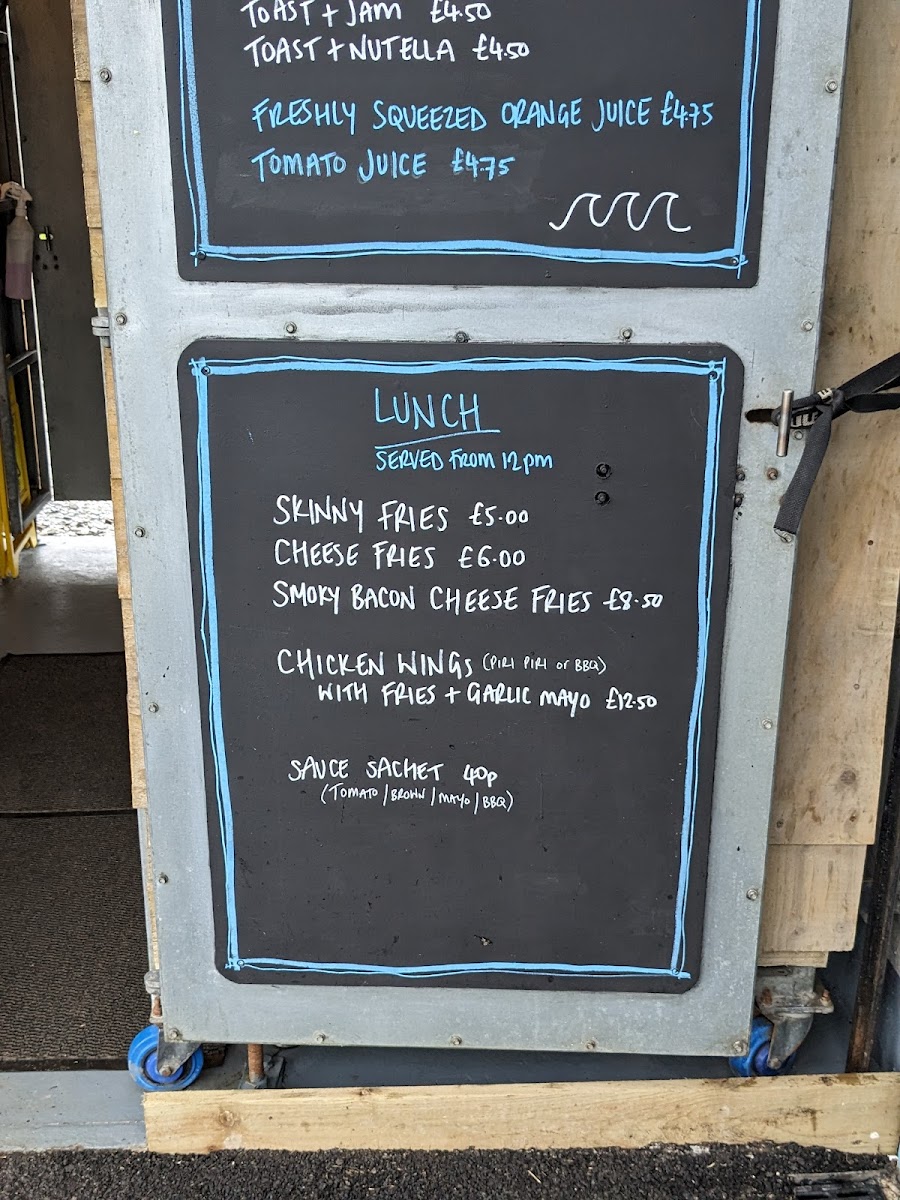 TOAST + JAM £4.50
TOAST + NUTELLA £4.50
FRESHLY SQUEEZED ORANGE JUICE £4.75
TOMATO JUICE £4.75
LUNCH
SERVED FROM 12pm
SKINNY FRIES £5.00
CHEESE FRIES £6.00
SMOKY BACON CHEESE FRIES £8.50
CHICKEN WINGS (PIRI PIRI or BBQ)
WITH FRIES + GARLIC MAYO £12.50
SAUCE SACHET 40p
(TOMATO / BROWN / MAYO / BBQ)